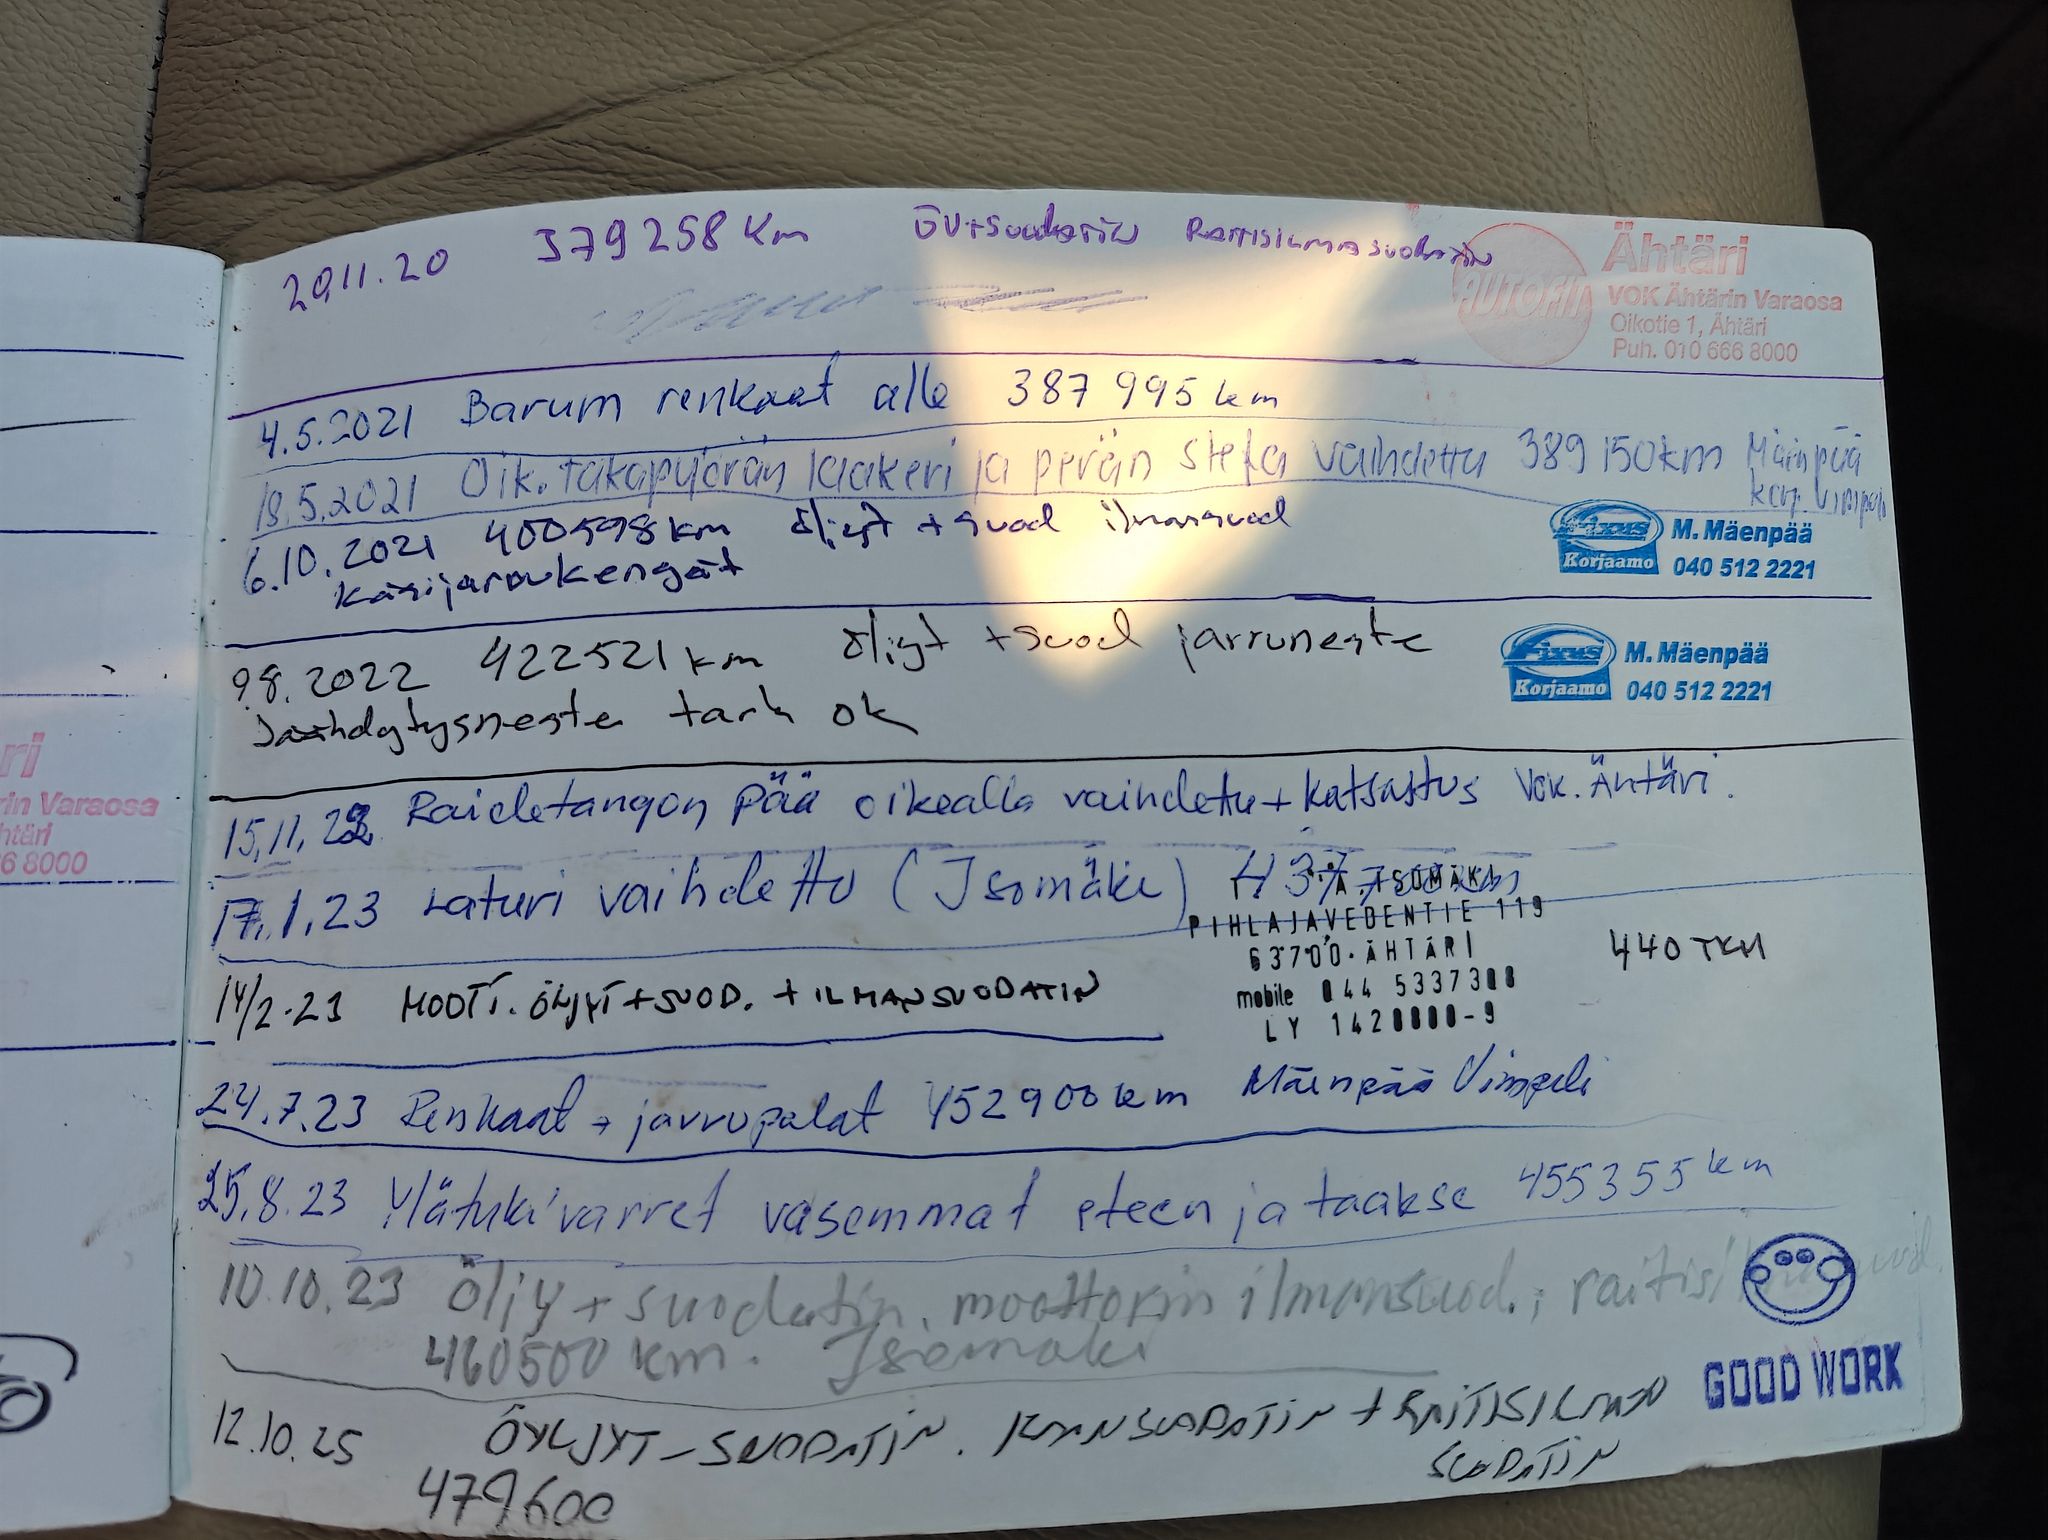 20.11.20 379258 km ÖV+Suodatin RAITISILMASUODATIN
AUTOFIT
Ähtäri
VOK Ähtärin Varaosa
Oikotie 1, Ähtäri
Puh. 010 666 8000
4.5.2021 Barum renkaat alle 387 995 km
18.5.2021 Oik. takapyörän laakeri ja perän stefa vaihdettu 389 150 km Mäenpää
6.10.2021 400598 km öljyt + suod ilmansuod
käsijarrukengät
Fixus Korjaamo
M. Mäenpää
040 512 2221
9.8.2022 422521 km öljyt + suod jarruneste
Jäähdytysneste tark ok
Fixus Korjaamo
M. Mäenpää
040 512 2221
15.11.22 Raidetangon pää oikealla vaihdettu + katsastus Vok. Ähtäri.
17.1.23 Laturi vaihdettu (Isomäki)
ISOMÄKI
PIHLAJAVEDENTIE 119
63700 ÄHTÄRI
mobile 044 5337308
LY 1420000-9
14/2.23 MOOTT. ÖLJYT + SUOD. + ILMANSUODATIN 440 TKM
24.7.23 Renkaat + jarrupalat 452900 km Mäenpää Vimpeli
25.8.23 Ylätukivarret vasemmat eteen ja taakse 455355 km
10.10.23 Öljy + suodatin, moottorin ilmansuod.,
460500 km. Isomäki
GOOD WORK
12.10.25 ÖYLJYT - SUODATIN. + RAITISILMA
SUODATIN
479600
ri
rin Varaosa
htäri
6 8000